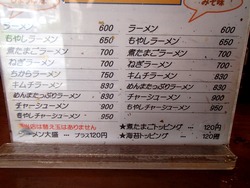 みそ味
ラーメン 600
もやしラーメン 650
煮たまごラーメン 700
ねぎラーメン 700
ちからラーメン 750
キムチラーメン 850
めんまたっぷりラーメン 850
チャーシューメン 900
もやしチャーシューメン 950
替え玉はありません
ラーメン大盛 プラス120円
ラーメン 600
もやしラーメン 650
煮たまごラーメン 700
ねぎラーメン 700
キムチラーメン 850
めんまたっぷりラーメン 850
チャーシューメン 900
もやしチャーシューメン 950
★煮たまごトッピング ― 120円
★海苔トッピング ― 120円